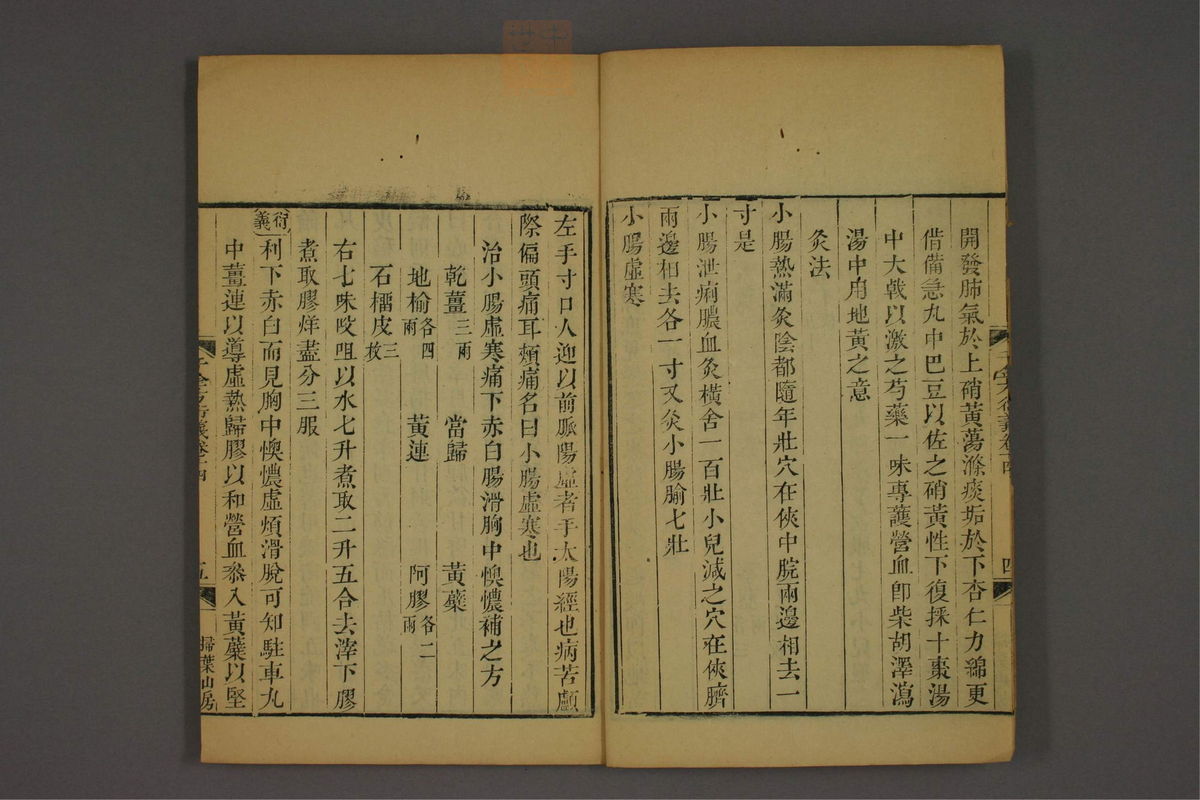 開發肺氣於上硝黃蕩滌痰垢於下杏仁力綿更
借備急丸中巴豆以佐之硝黃性下復採十棗湯
中大戟以激之芍藥一味專護營血卽柴胡澤瀉
湯中用地黃之意
灸法
小腸熱滿灸陰都隨年壯穴在俠中脘兩邊相去一
寸是
小腸泄痢膿血灸橫舍一百壯小兒減之穴在俠臍
兩邊相去各一寸又灸小腸腧七壯
小腸虛寒
左手寸口人迎以前脈陽虛者手太陽經也病苦顱
際偏頭痛耳頰痛名曰小腸虛寒也
治小腸虛寒痛下赤白腸滑胸中懊憹補之方
乾薑三兩 當歸 黃蘗
地榆各四兩 黃連 阿膠各二兩
石榴皮三枚
右七味㕮咀以水七升煮取二升五合去滓下膠
煮取膠烊盡分三服
衍義
利下赤白而見胸中懊憹虛煩滑脫可知駐車丸
中薑連以導虛熱歸膠以和營血叅入黃蘗以堅
千金方衍義卷十四
五
掃葉山房
四